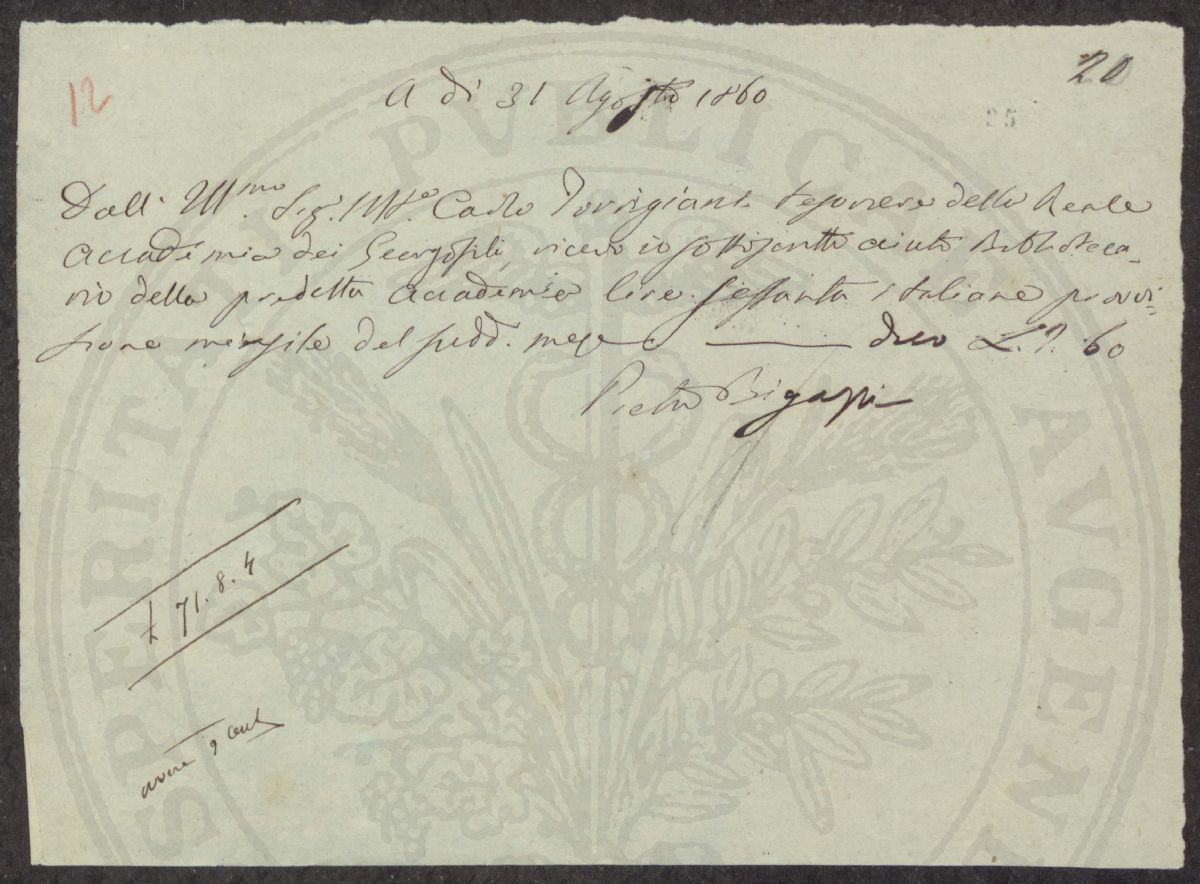 12
20
25
A dì 31 Agosto 1860
Dall' Ill.mo Sig. M.se Carlo Torrigiani tesoriere della Reale
Accademia dei Georgofili, ricevo io sottoscritto aiuto Biblioteca-
rio della predetta Accademia lire sessanta italiane provvi-
sione mensile del sudd. mese ——— dico L. I. 60
Pietro Bigazzi
£ 71. 8. 4
avere 9 Cent
PROSPERITATI PVBLICAE AVGENDAE